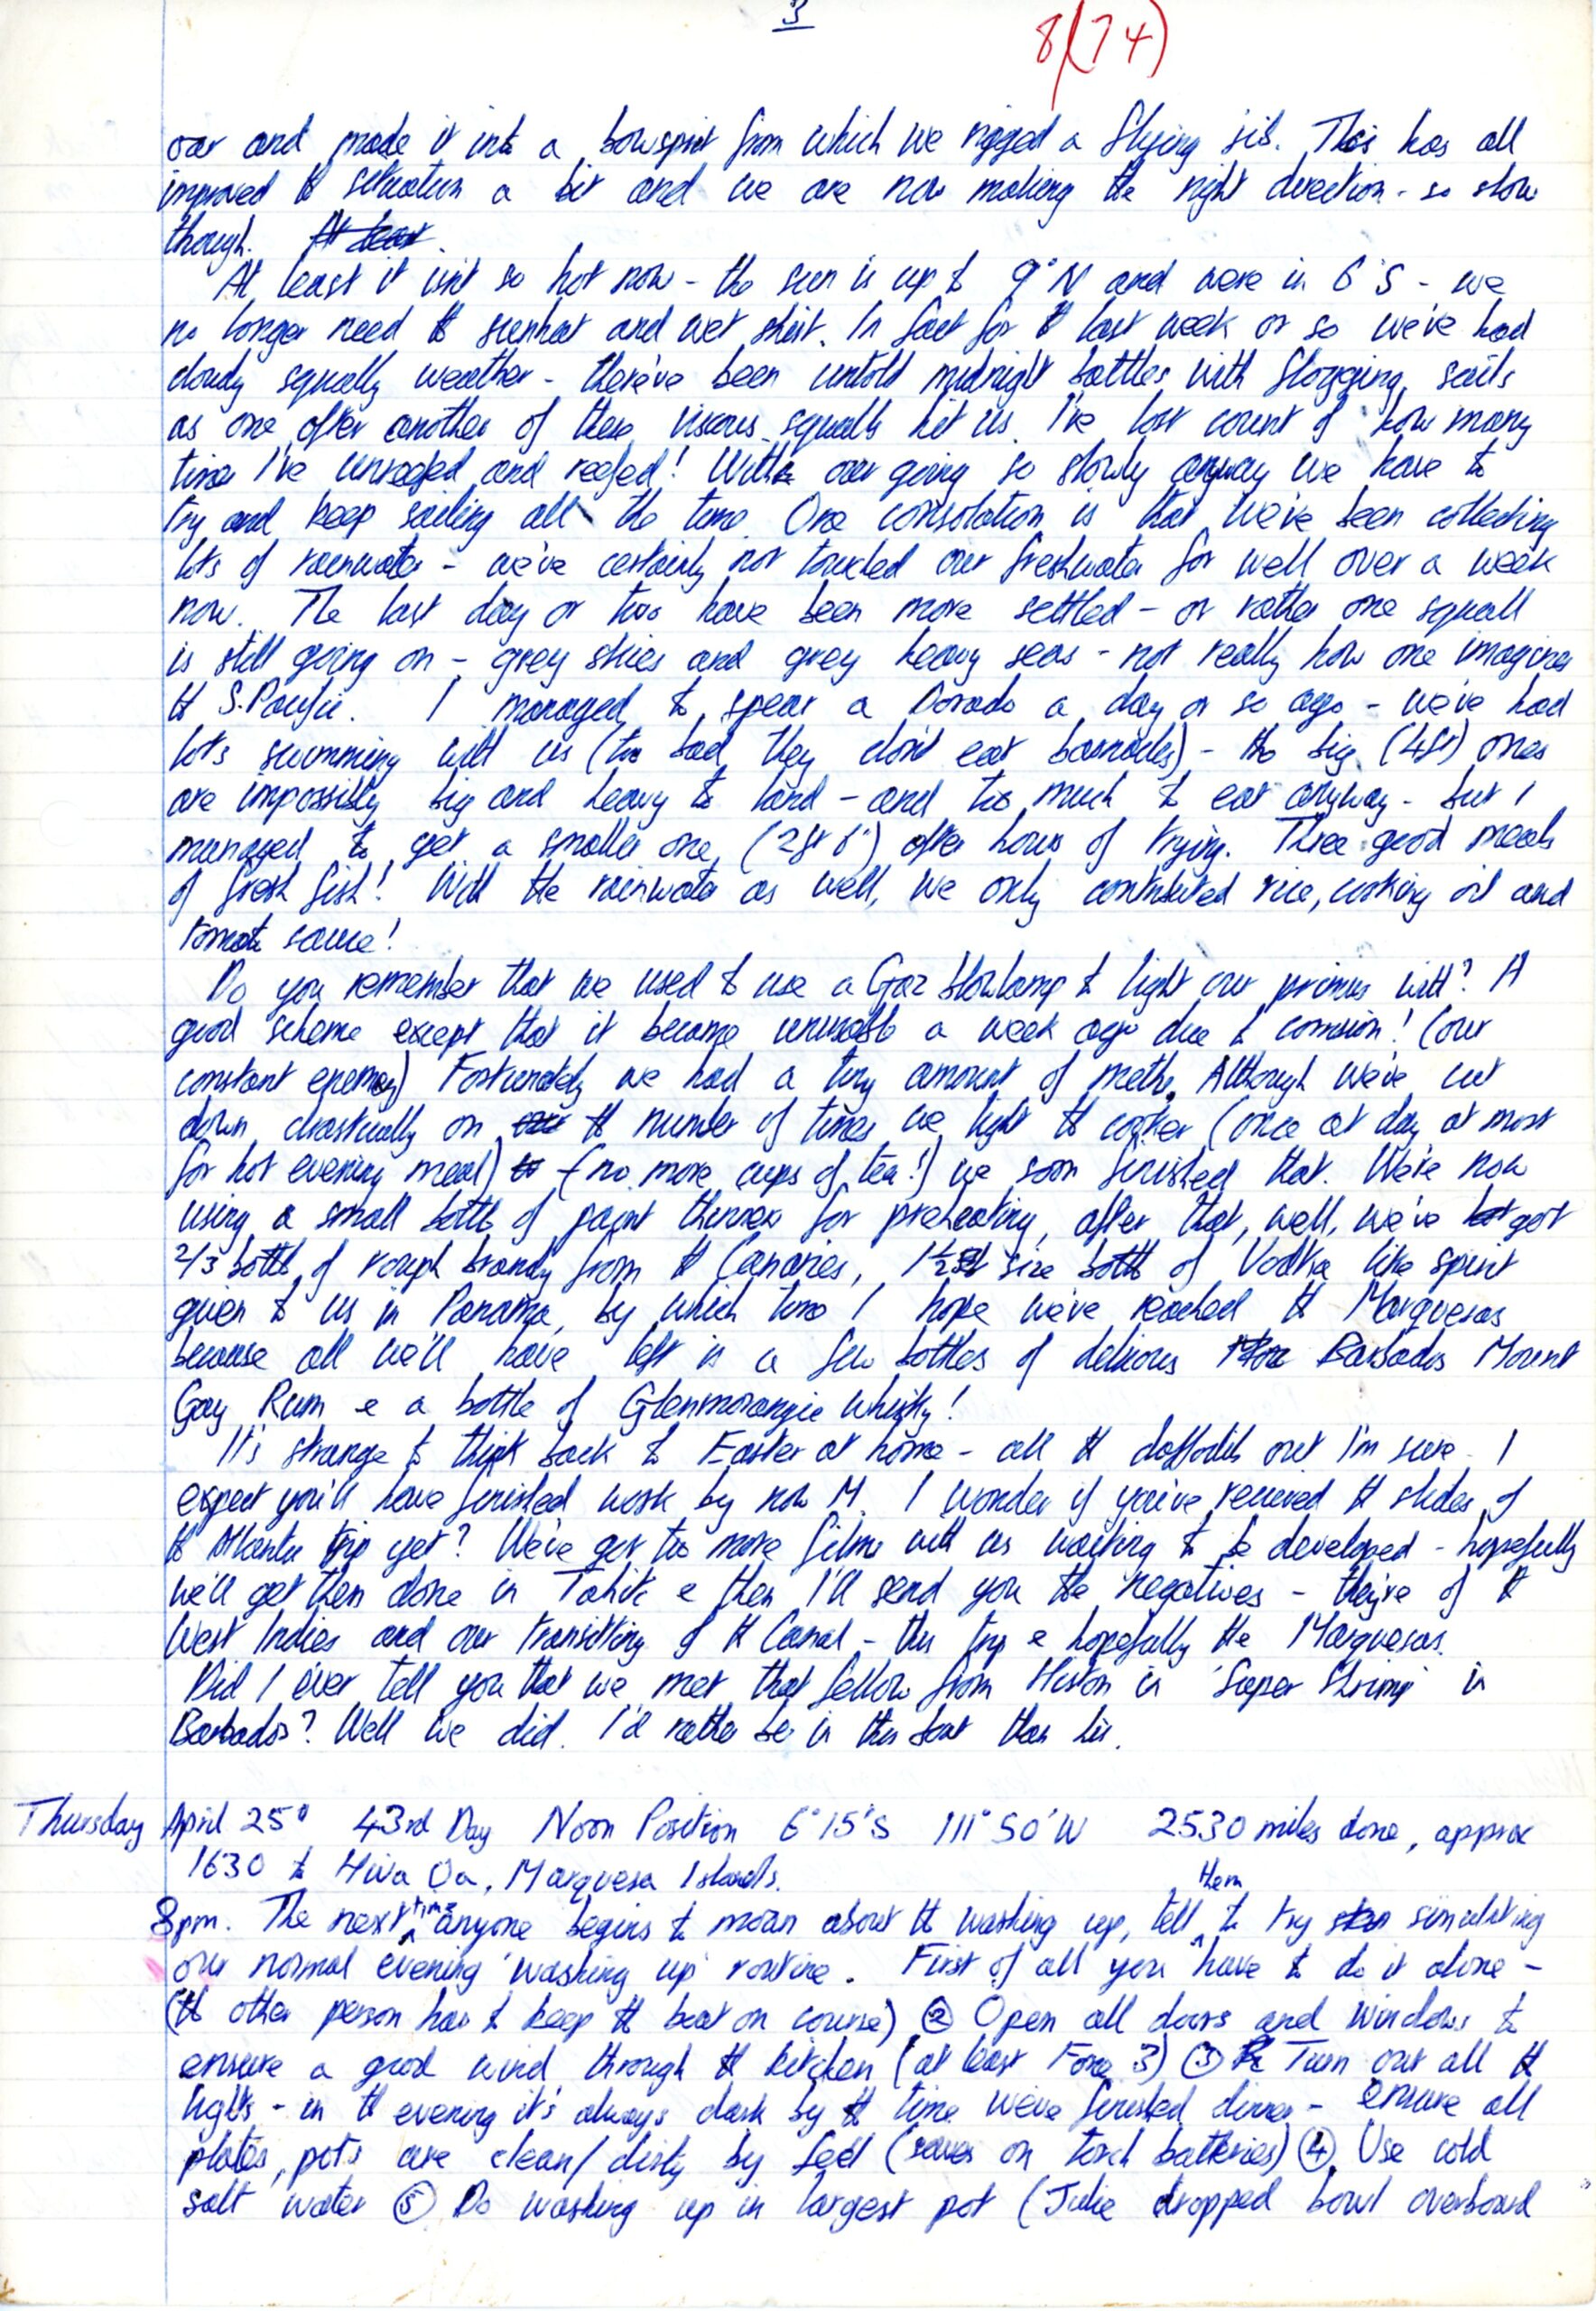 3
8(74)
oar and made it into a bowsprit from which we rigged a flying jib. This has all
improved th situation a bit and we are now making the right direction - so slow
though. At least.
At least it isn't so hot now - the sun is up to 9°N and we're in 6°S - we
no longer need th sunhat and wet shirt. In fact for th last week or so we've had
cloudy squally weather - there've been untold midnight battles with flogging sails
as one after another of these viscous squalls hit us. I've lost count of how many
times I've unreefed and reefed! With our going so slowly anyway we have to
try and keep sailing all the time. One consolation is that we've been collecting
lots of rainwater - we've certainly not touched our freshwater for well over a week
now. The last day or two have been more settled - or rather one squall
is still going on - grey skies and grey heavy seas - not really how one imagines
th S. Pacific. I managed to spear a Dorado a day or so ago - we've had
lots swimming with us (too bad they don't eat barnacles) - the big (4ft) ones
are impossibly big and heavy to land - and too much to eat anyway - but I
managed to get a smaller one (2ft 6") after hours of trying. Three good meals
of fresh fish! With the rainwater as well, we only contributed rice, cooking oil and
tomato sauce!
Do you remember that we used to use a Gaz blowlamp to light our primus with? A
good scheme except that it became unusable a week ago due to corrosion! (our
constant enemy) Fortunately we had a tiny amount of meths. Although we've cut
down drastically on th number of times we light th cooker (once at day at most
for hot evening meal) (no more cups of tea!) we soon finished that. We're now
using a small bottle of paint thinner for preheating, after that, well, we've got
2/3 bottle of rough brandy from th Canaries, 1 1/2 size bottle of Vodka like spirit
given to us in Panama, by which time I hope we've reached th Marquesas
because all we'll have left is a few bottles of delicious Barbados Mount
Gay Rum & a bottle of Glenmorangie Whisky!
It's strange to think back to Easter at home - all th daffodils out I'm sure. I
expect you'll have finished work by now M. I wonder if you've recieved th slides of
th Atlantic trip yet? We've got two more films with us waiting to be developed - hopefully
we'll get them done in Tahiti & then I'll send you the negatives - they're of th
West Indies and our transitting of th Canal - this trip & hopefully the Marquesas.
Did I ever tell you that we met that fellow from Histon in 'Super Shrimp' in
Barbados? Well we did. I'd rather be in this boat than his.
Thursday April 25th 43rd Day Noon Position 6°15'S 111°50'W 2530 miles done, approx
1630 to Hiva Oa, Marquesa Islands.
8pm. The next time anyone begins to moan about th washing up, tell them to try simulating
our normal evening 'washing up' routine. First of all you have to do it alone -
(th other person has to keep th boat on course) ② Open all doors and windows to
ensure a good wind through th kitchen (at least Force 3) ③ Turn out all th
lights - in th evening it's always dark by th time we've finished dinner - ensure all
plates, pots are clean/dirty by feel (saves on torch batteries) ④ Use cold
salt water ⑤ Do washing up in largest pot (Julie dropped bowl overboard